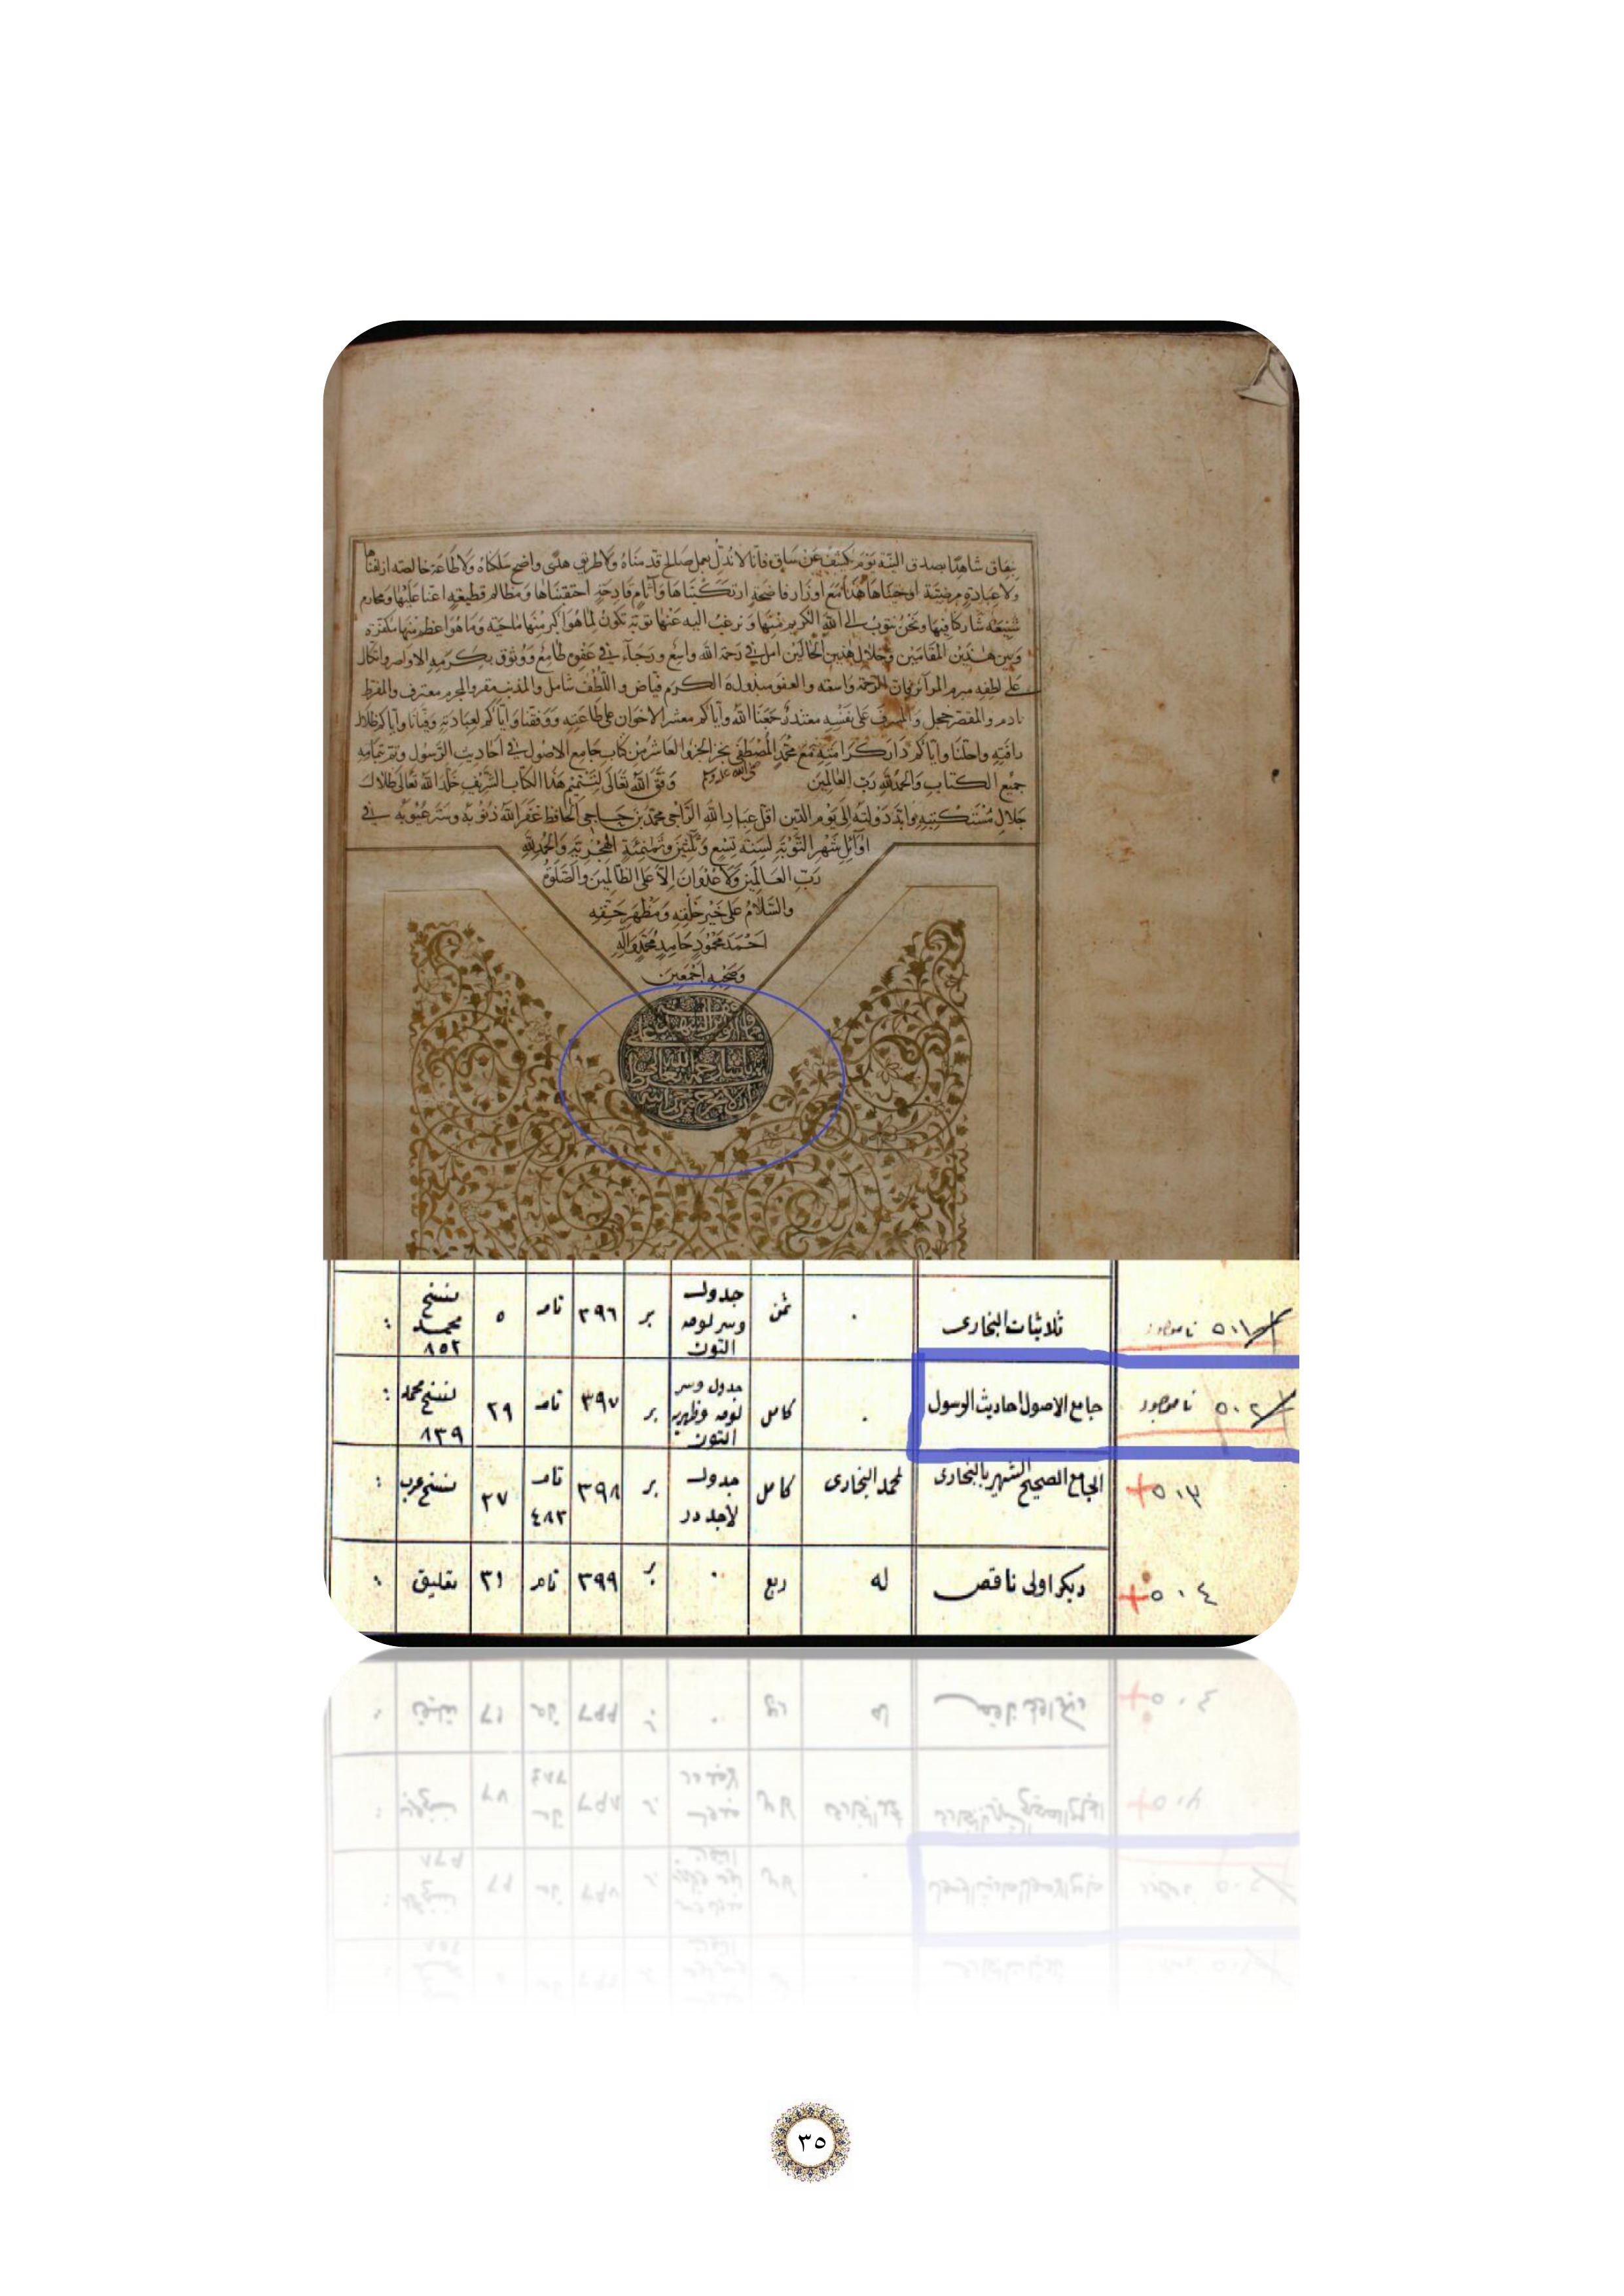 بنفاق شاهدًا بصدق النية يَوْمَ يُكْشَفُ عَنْ سَاقٍ فانا لا نُدِلّ بعمل صالح قدمناه ولا طريق هدى واضح سلكناه ولا طاعة خالصة ازلفنا
ولا عبادة مرضية اوجبناها هذا مع اوزار فاضحة ارتكبناها وآثام قادحة احتقبناها ومظالم قطيعة اعنا عليها ومحارم
شنيعة شاركنا فيها ونحن نتوب الى الله الكريم منها ونرغب اليه عنها توبة تكون لما هو اكبر منها ماحية وما هو اعظم منها مكفرة
وبين هذين المقامين وخلال هذين الحالين امل في رحمة الله واسع ورجاء في عفوه طامع ووثوق بكرمه الاواصر واتكال
على لطفه مبرم المرآئر فان الرحمة واسعة والعفو مبذول والكرم فياض واللطف شامل والمذنب مقر والمجرم معترف والمفرط
نادم والمقصر خجل والمسرف على نفسه معتذر جمعنا الله واياكم معشر الاخوان على طاعته ووفقنا واياكم لعبادته وفيانا واياكم ظلال
رافته واحلنا واياكم دار كرامته مع محمد المصطفى نجز الجزو العاشر من كتاب جامع الاصول في احاديث الرسول وتم بتمامه
جميع الكتاب والحمد لله رب العالمين صلى الله عليه وسلم وفق الله تعالى لتتميم هذا الكتاب الشريف خلد الله تعالى ظلال
جلال مستكتبه وابد دولته الى يوم الدين اقل عباد الله الراجي محمد بن حاجي الحافظ غفر الله ذنوبه وستر عيوبه في
اوائل شهر التوبة لسنة تسع وثلثين وثمنمئة الهجرية والحمد لله
رب العالمين ولا عدوان الا على الظالمين والصلوة
والسلام على خير خلقه ومظهر حقه
احمد محمود حامد محمد وآله
وصحبه اجمعين
٥٠١ ناموجود ثلاثيات البخارى . ثمن جدول وسر لوحه التون بر ٣٩٦ تام ٥ نسخ محمد ٨٥٢ :
٥٠٢ ناموجود جامع الاصول احاديث الرسول . كامل جدول وسر لوحه وظهريه التون بر ٣٩٧ تام ٢٩ نسخ محمد ٨٣٩ :
٥٠٣ + الجامع الصحيح الشهير بالبخارى لمحمد البخارى كامل جدول لاجورد بر ٣٩٨ تام ٤٨٣ ٢٧ نسخ عرب :
٥٠٤ + ديكر اولى ناقص له ربع . بر ٣٩٩ تام ٣١ تعليق :
٣٥